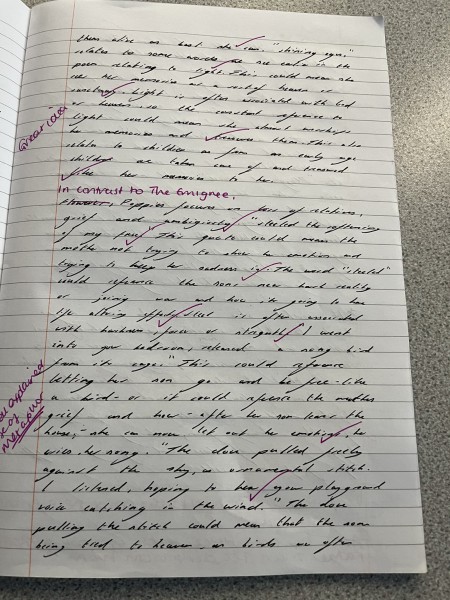 them alive as best she can. "shining eyes"
relates to some words we see earlier in the
poem relating to light. This could mean she
see her memories as a sort of heaven or
sanctuary. Light is often associated with God
or heaven so the constant reference to
light could mean she almost worships
her memories and treasures them. This also
relate to children as from an early age
children are taken care of and treasured
like her memories to her.
Great idea
In contrast to The Emigree,
Poppies focuses on loss of relations,
grief and ambiguity. "steeled the softening
of my face" This quote could mean the
mother not trying to show her emotion and
trying to keep her sadness in. The word "steeled"
could reference the sons new harsh reality
or joining war and how its going to have
life altering effects. Steel is often associated
with harshness, force or strength. "I went
into your bedroom, released a song bird
from its cage." This could reference
letting her son go and be free - like
a bird - or it could reference the mothers
grief and how - after her son leaves the
house, - she can now let out her emotions, he
was her song. "The dove pulled freely
against the sky, an ornamental stitch.
I listened, hoping to hear your playground
voice catching in the wind." The dove
pulling the stitch could mean that the son
being tied to heaven, as birds are often
explained
use of
metaphor